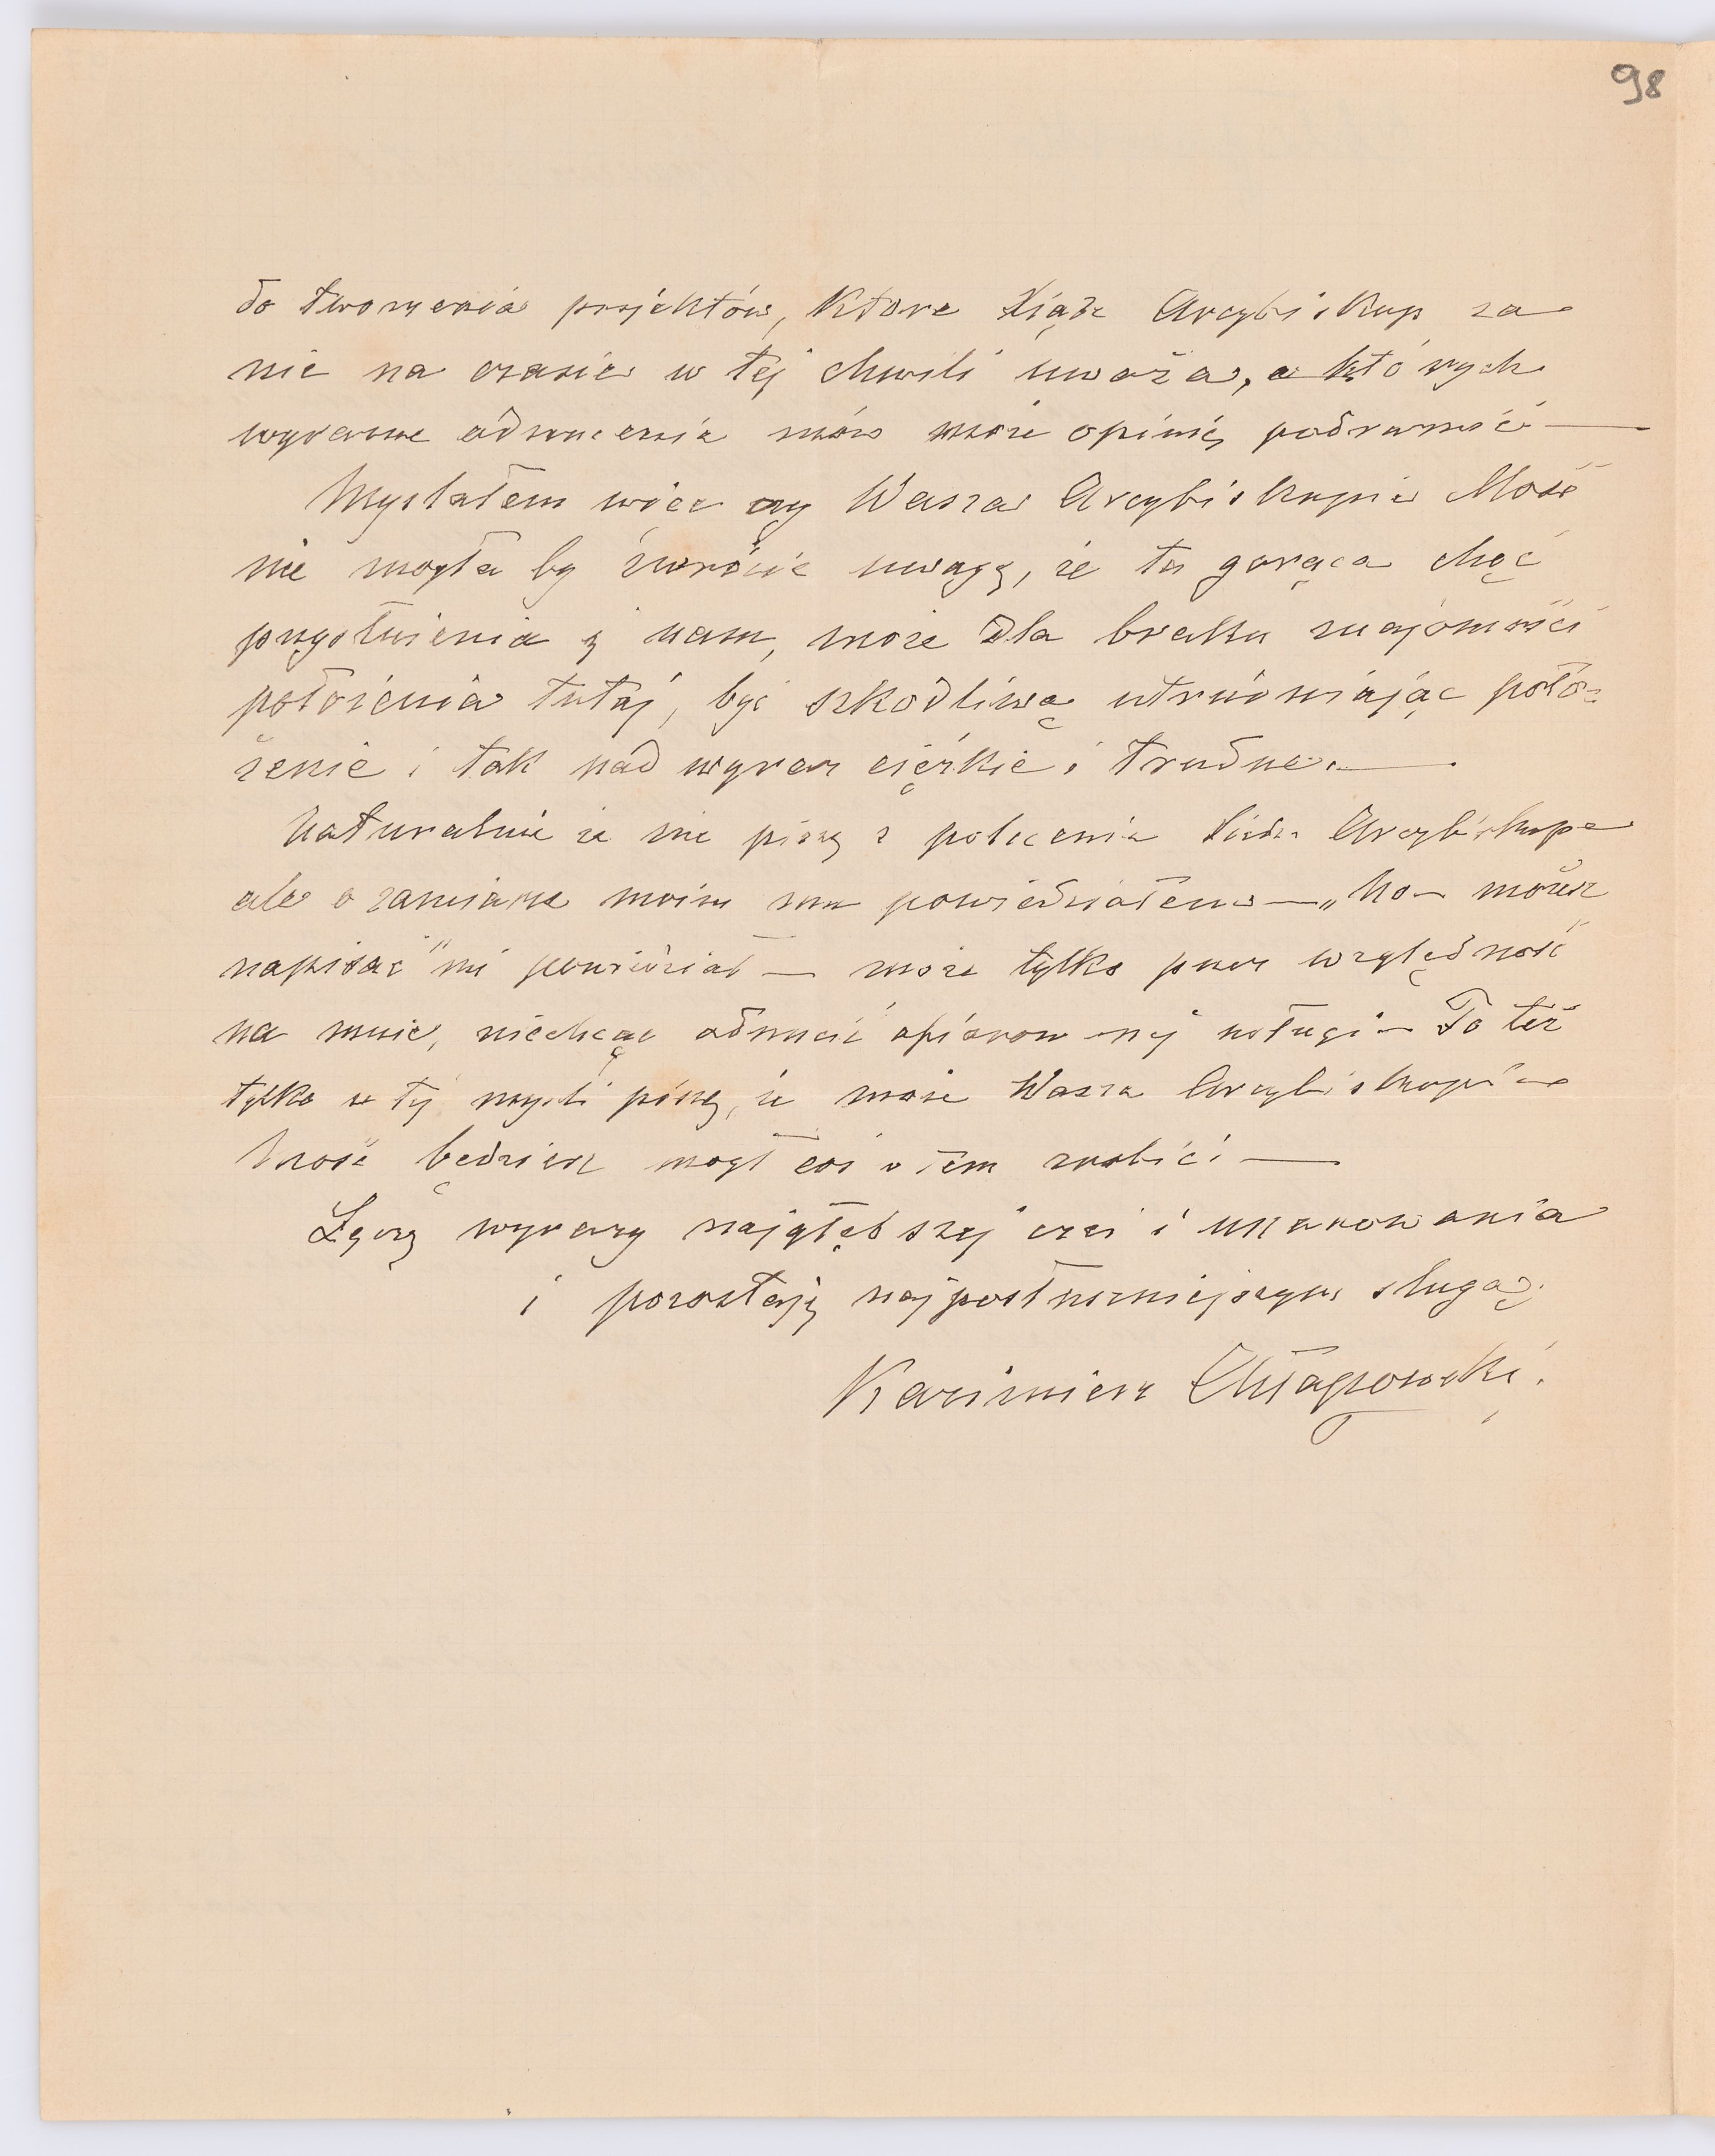 98
do tworzenia projektów, które Xiądz Arcybiskup za
nie na czasie w tej chwili uważa, a których
wyraźne odrzucenie znów może opinię podrażnić —
Myslałem więc czy Wasza Arcybiskupia Mość
nie mogła by zwrócić uwagę, że ta gorąca chęć
przysłużenia się nam, może dla braku znajomości
położenia tutaj, być szkodliwą utrudniając poło-
żenie i tak nad wyraz ciężkie i trudne. —
Naturalnie że nie piszę z polecenia Xiędza Arcybiskupa
ale o zamiarze moim mu powiedziałem — „No — możesz
napisać" mi powiedział — może tylko przez względność
na mnie, niechcąc odrzucić ofiarowanej usługi — To też
tylko w tej mysli piszę, że może Wasza Arcybiskupia
Mość będziesz mógł coś w tem zrobić. —
Łączę wyrazy najgłębszej czci i uszanowania
i pozostaję najposłuszniejszym sługą.
Kazimierz Chłapowski.